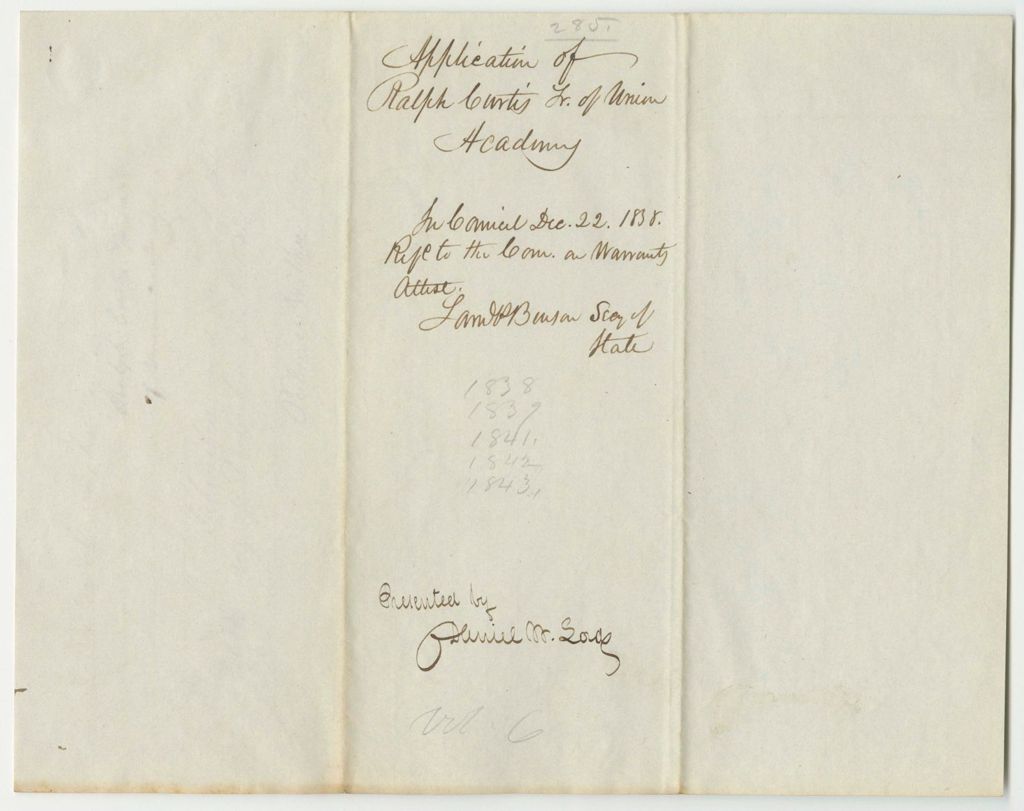 285
Application of
Ralph Curtis Tr. of Union
Academy
In Council Dec. 22. 1838.
Refd to the Com. on Warrants
Attest.
Saml P Benson Secy of
State
1838
1839
1841.
1842
1843.
Presented by
Daniel W.
Vol. 6